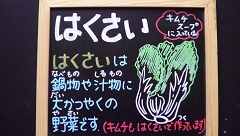 はくさい
キムチ
スープ
に入っている
はくさいは
なべもの しるもの
鍋物や汁物に
だい
大かつやくの
やさい
野菜です
(キムチもはくさいで作っています)
つく